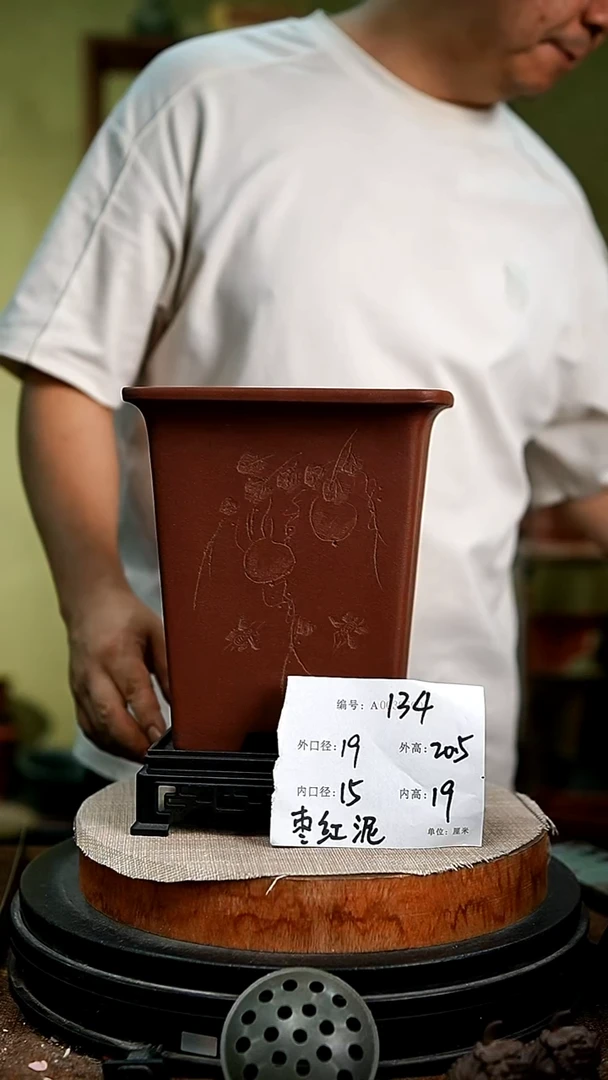 编号: A00134
外口径: 19 外高: 20.5
内口径: 15 内高: 19
枣红泥 单位: 厘米